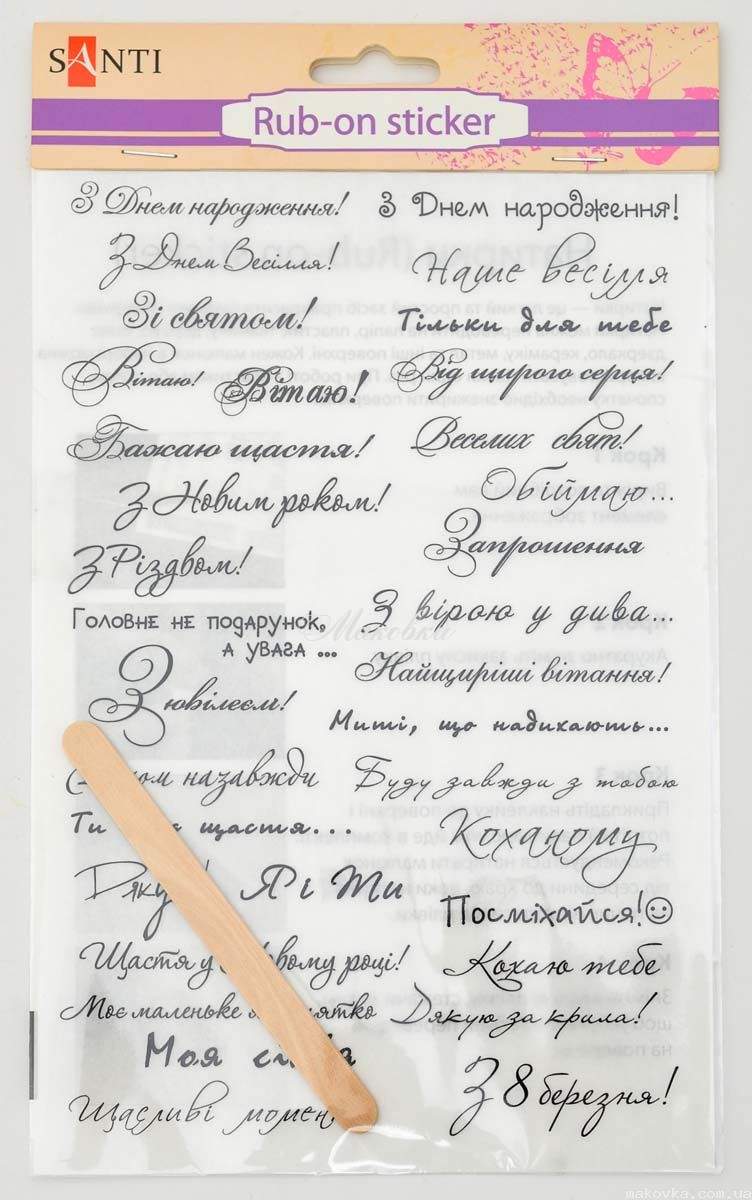 SANTI
Rub-on sticker
З Днем народження!
З Днем народження!
З Днем Весілля!
Наше весілля
Зі святом!
Тільки для тебе
Вітаю!
Вітаю!
Від щирого серця!
Бажаю щастя!
Веселих свят!
З Новим роком!
Обіймаю...
Запрошення
З Різдвом!
З вірою у дива...
Головне не подарунок,
а увага ...
Маковка
Найщиріші вітання!
З ювілеєм!
Миті, що надихають...
назавжди
Буду завжди з тобою
Ти щастя...
Коханому
Я і Ти
Посміхайся!☺
Щастя у році!
Кохаю тебе
Моє маленьке
Дякую за крила!
Моя
З 8 березня!
Щасливі
makovka.com.ua